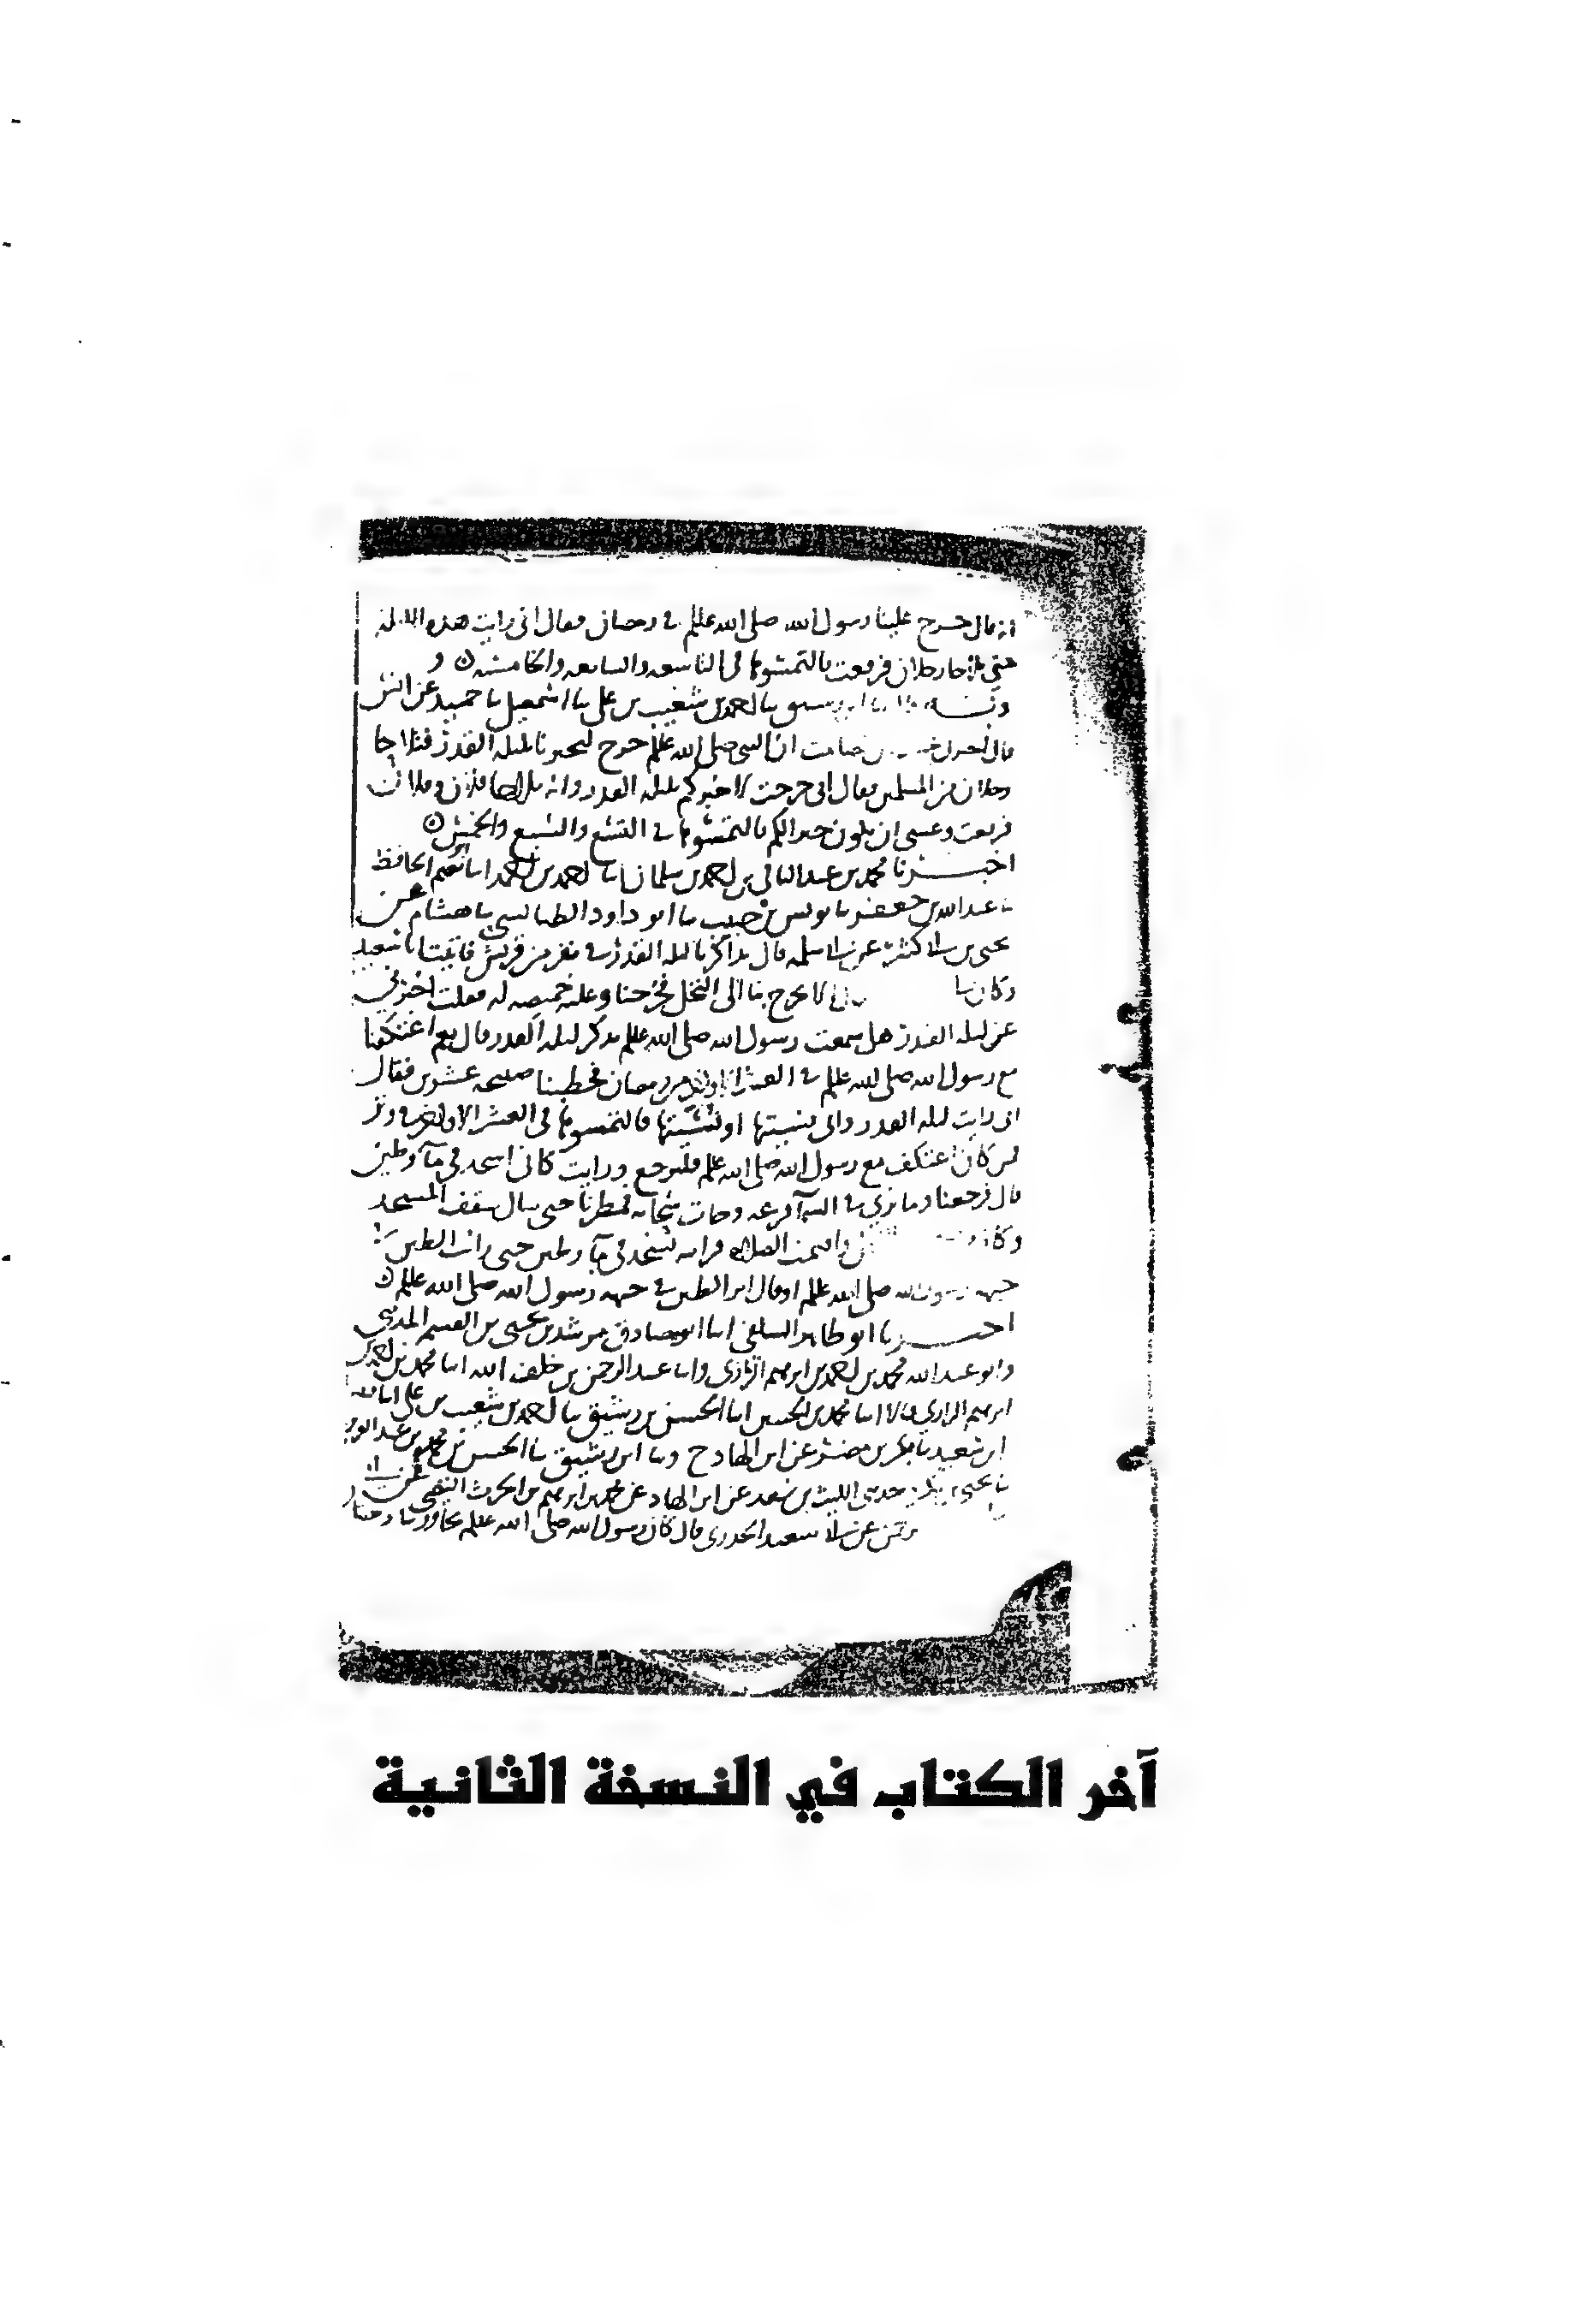 انه قال خرج علينا رسول الله صلى الله عليه وسلم في رمضان فقال اني رايت هذه الليلة
حتى تلاحا رجلان فرفعت فالتمسوها في التاسعه والسابعه والخامسه
بن شعيب بن علي نا اسمعيل نا حميد عن انس
قال صامت ان النبي صلى الله عليه وسلم خرج ليخبرنا بليله القدر فتلاحا
رجلان من المسلمين فقال اني خرجت لاخبركم بليله القدر وانه تلاحا فلان وفلان
فرفعت وعسى ان يكون خيرا لكم فالتمسوها في التسع والسبع والخمس
اخبرنا محمد بن عبد الباقي بن احمد بن سلمان انا احمد بن احمد انا ابو نعيم الحافظ
نا عبد الله بن جعفر نا يونس بن حبيب نا ابو داود الطيالسي نا هشام عن
يحيى بن ابي كثير عن ابي سلمه قال تذاكرنا ليله القدر في نفر من قريش فاتيت ابا سعيد
وكان لي الا تخرج بنا الى النخل فخرجنا وعليه خميصه له فقلت اخبرني
عن ليله القدر هل سمعت رسول الله صلى الله عليه وسلم يذكر ليله القدر قال نعم اعتكفنا
مع رسول الله صلى الله عليه وسلم في العشر من رمضان فخطبنا صبيحه عشرين فقال
اني رايت ليله القدر واني نسيتها او نسيتها فالتمسوها في العشر الاواخر في وتر
فمن كان اعتكف مع رسول الله صلى الله عليه وسلم فليرجع ورايت كاني اسجد في مآ وطين
قال فرجعنا وما نرى في السمآ قزعه وجات سحابه فمطرنا حتى سال سقف المسجد
وكان واقيمت الصلاه فرايته يسجد في مآ وطين حتى رايت الطين في
جبهه رسول الله صلى الله عليه وسلم او قال اثر الطين في جبهه رسول الله صلى الله عليه وسلم
اخبرنا ابو طاهر السلفي انا ابو صادق مرشد بن يحيى بن القسم المديني
وابو عبد الله محمد بن احمد بن ابرهيم الرازي وانا عبد الرحمن بن خلف الله انا محمد بن احمد بن
ابرهيم الرازي قالا انا محمد بن الحسين انا الحسن بن رشيق نا احمد بن شعيب بن علي انا
ابن سعيد نا بكر بن مضر عن ابن الهاد ح ونا ابن رشيق نا الحسن بن محمد بن عبد العزيز
نا يحيى بن بكير حدثني الليث بن سعد عن ابن الهاد عن محمد بن ابرهيم بن الحرث التيمي عن
عن ابي سعيد الخدري قال كان رسول الله صلى الله عليه وسلم يجاور
آخر الكتاب في النسخة الثانية